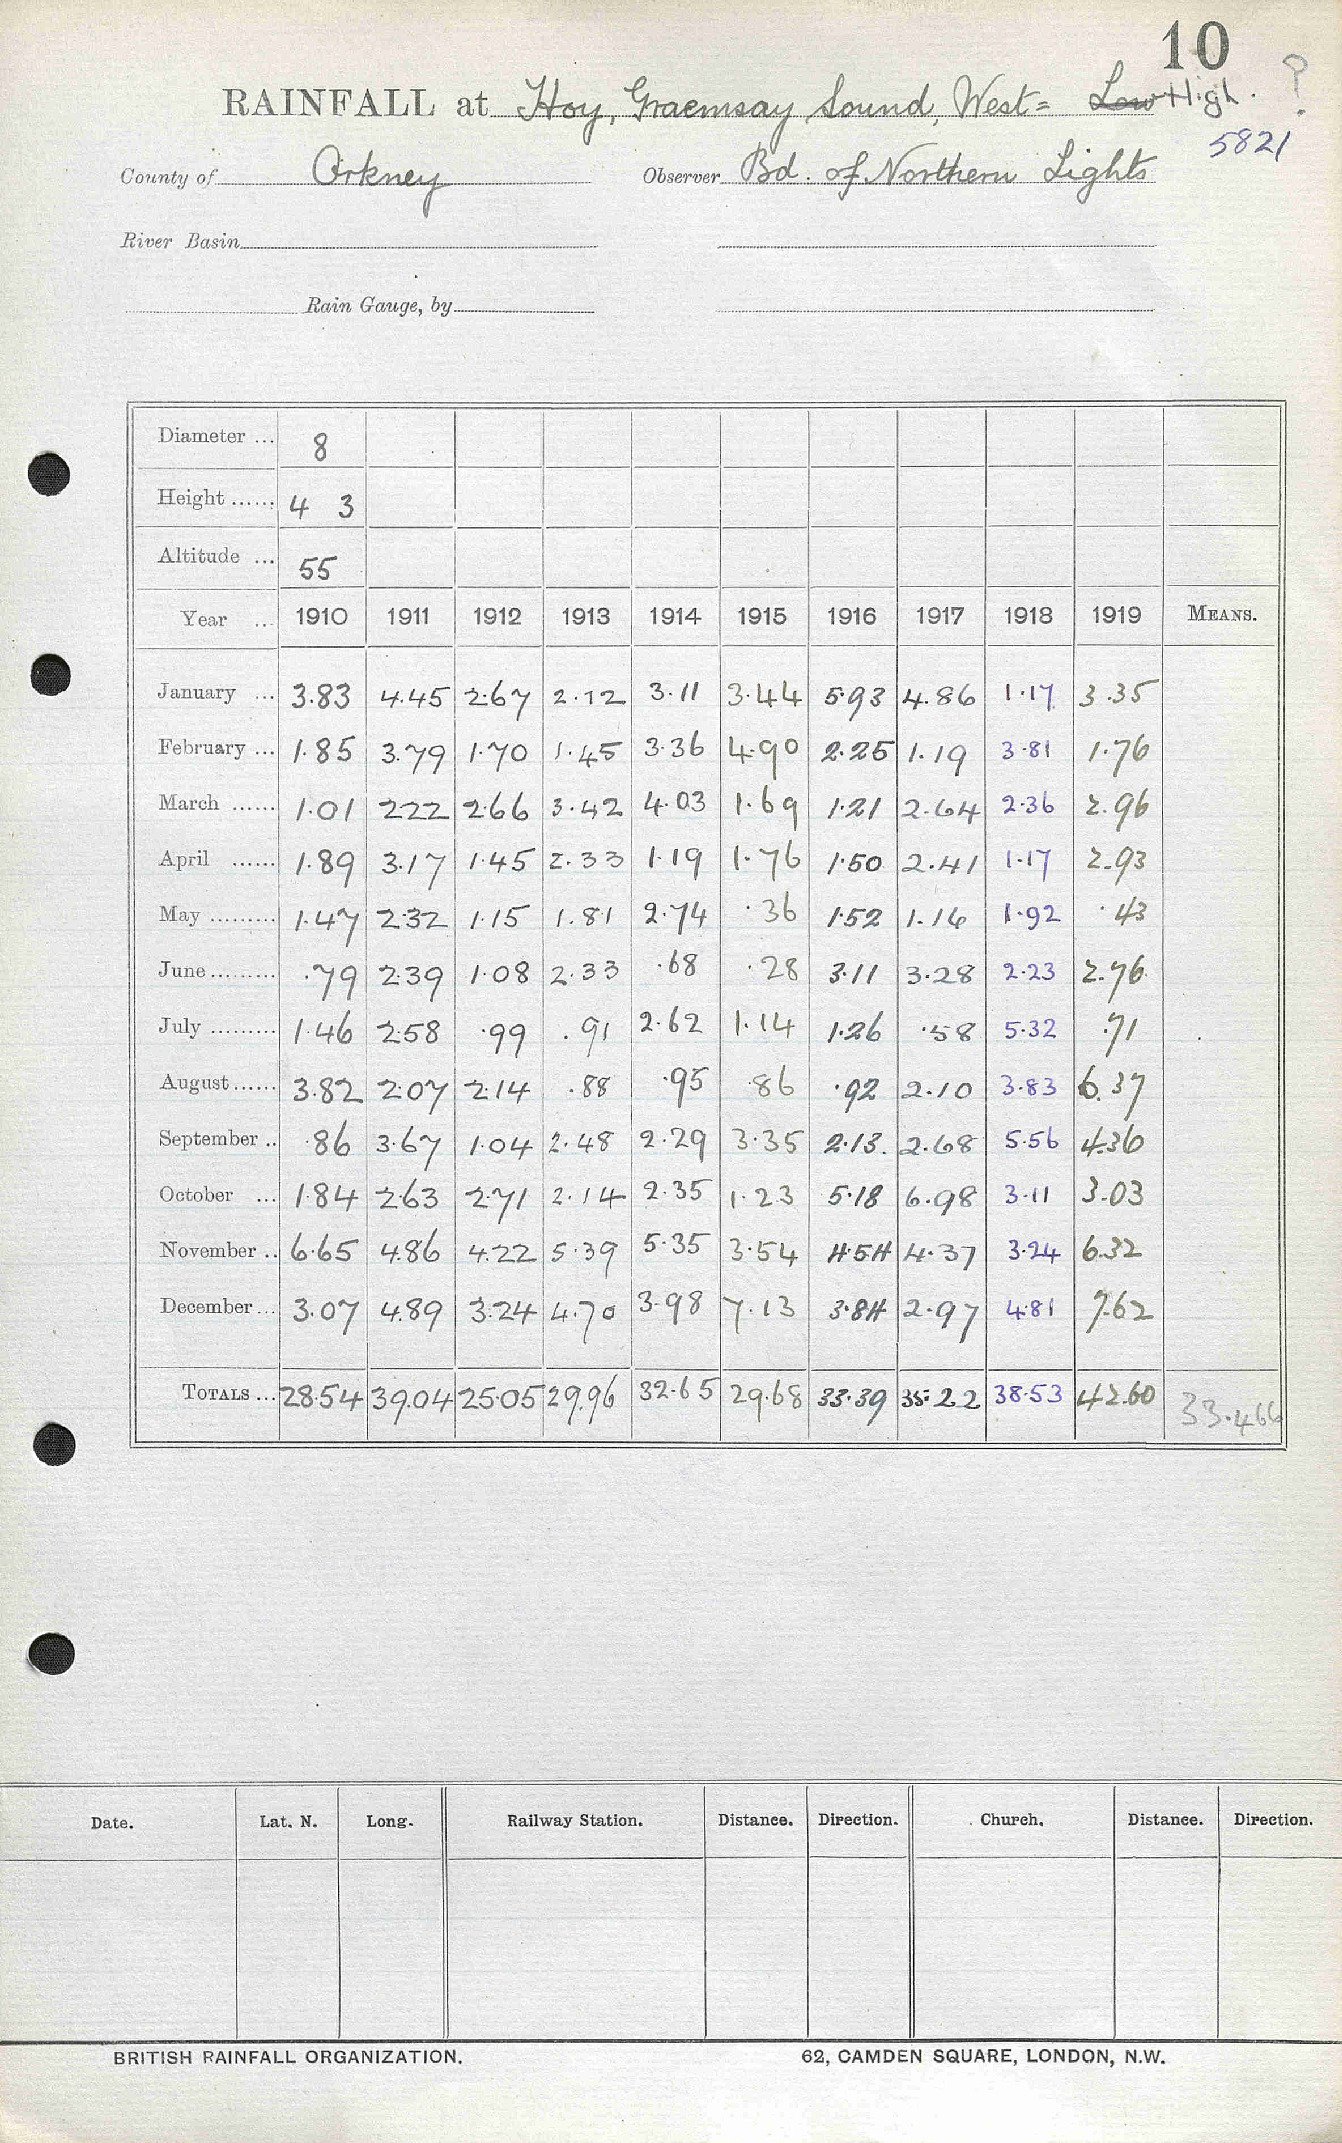 10
RAINFALL at Hoy, Graemsay Sound, West= Low High. ?
5821
County of Orkney Observer Bd. of Northern Lights
River Basin
Rain Gauge, by
Diameter ... 8
Height ...... 4 3
Altitude ... 55
Year ... 1910 1911 1912 1913 1914 1915 1916 1917 1918 1919 MEANS.
January ... 3.83 4.45 2.67 2.12 3.11 3.44 5.93 4.86 1.17 3.35
February ... 1.85 3.79 1.70 1.45 3.36 4.90 2.25 1.19 3.81 1.76
March ...... 1.01 2.22 2.66 3.42 4.03 1.69 1.21 2.64 2.36 2.96
April ...... 1.89 3.17 1.45 2.33 1.19 1.76 1.50 2.41 1.17 2.93
May ......... 1.47 2.32 1.15 1.81 2.74 .36 1.52 1.16 1.92 .43
June ......... .79 2.39 1.08 2.33 .68 .28 3.11 3.28 2.23 2.76
July ......... 1.46 2.58 .99 .91 2.62 1.14 1.26 .58 5.32 .71
August ...... 3.82 2.07 2.14 .88 .95 .86 .92 2.10 3.83 6.37
September .. .86 3.67 1.04 2.48 2.29 3.35 2.13. 2.68 5.56 4.36
October ... 1.84 2.63 2.71 2.14 2.35 1.23 5.18 6.98 3.11 3.03
November .. 6.65 4.86 4.22 5.39 5.35 3.54 4.54 4.37 3.24 6.32
December ... 3.07 4.89 3.24 4.70 3.98 7.13 3.84 2.97 4.81 7.62
TOTALS ... 28.54 39.04 25.05 29.96 32.65 29.68 33.39 35.22 38.53 42.60 33.466
Date. Lat. N. Long. Railway Station. Distance. Direction. Church. Distance. Direction.
BRITISH RAINFALL ORGANIZATION. 62, CAMDEN SQUARE, LONDON, N.W.